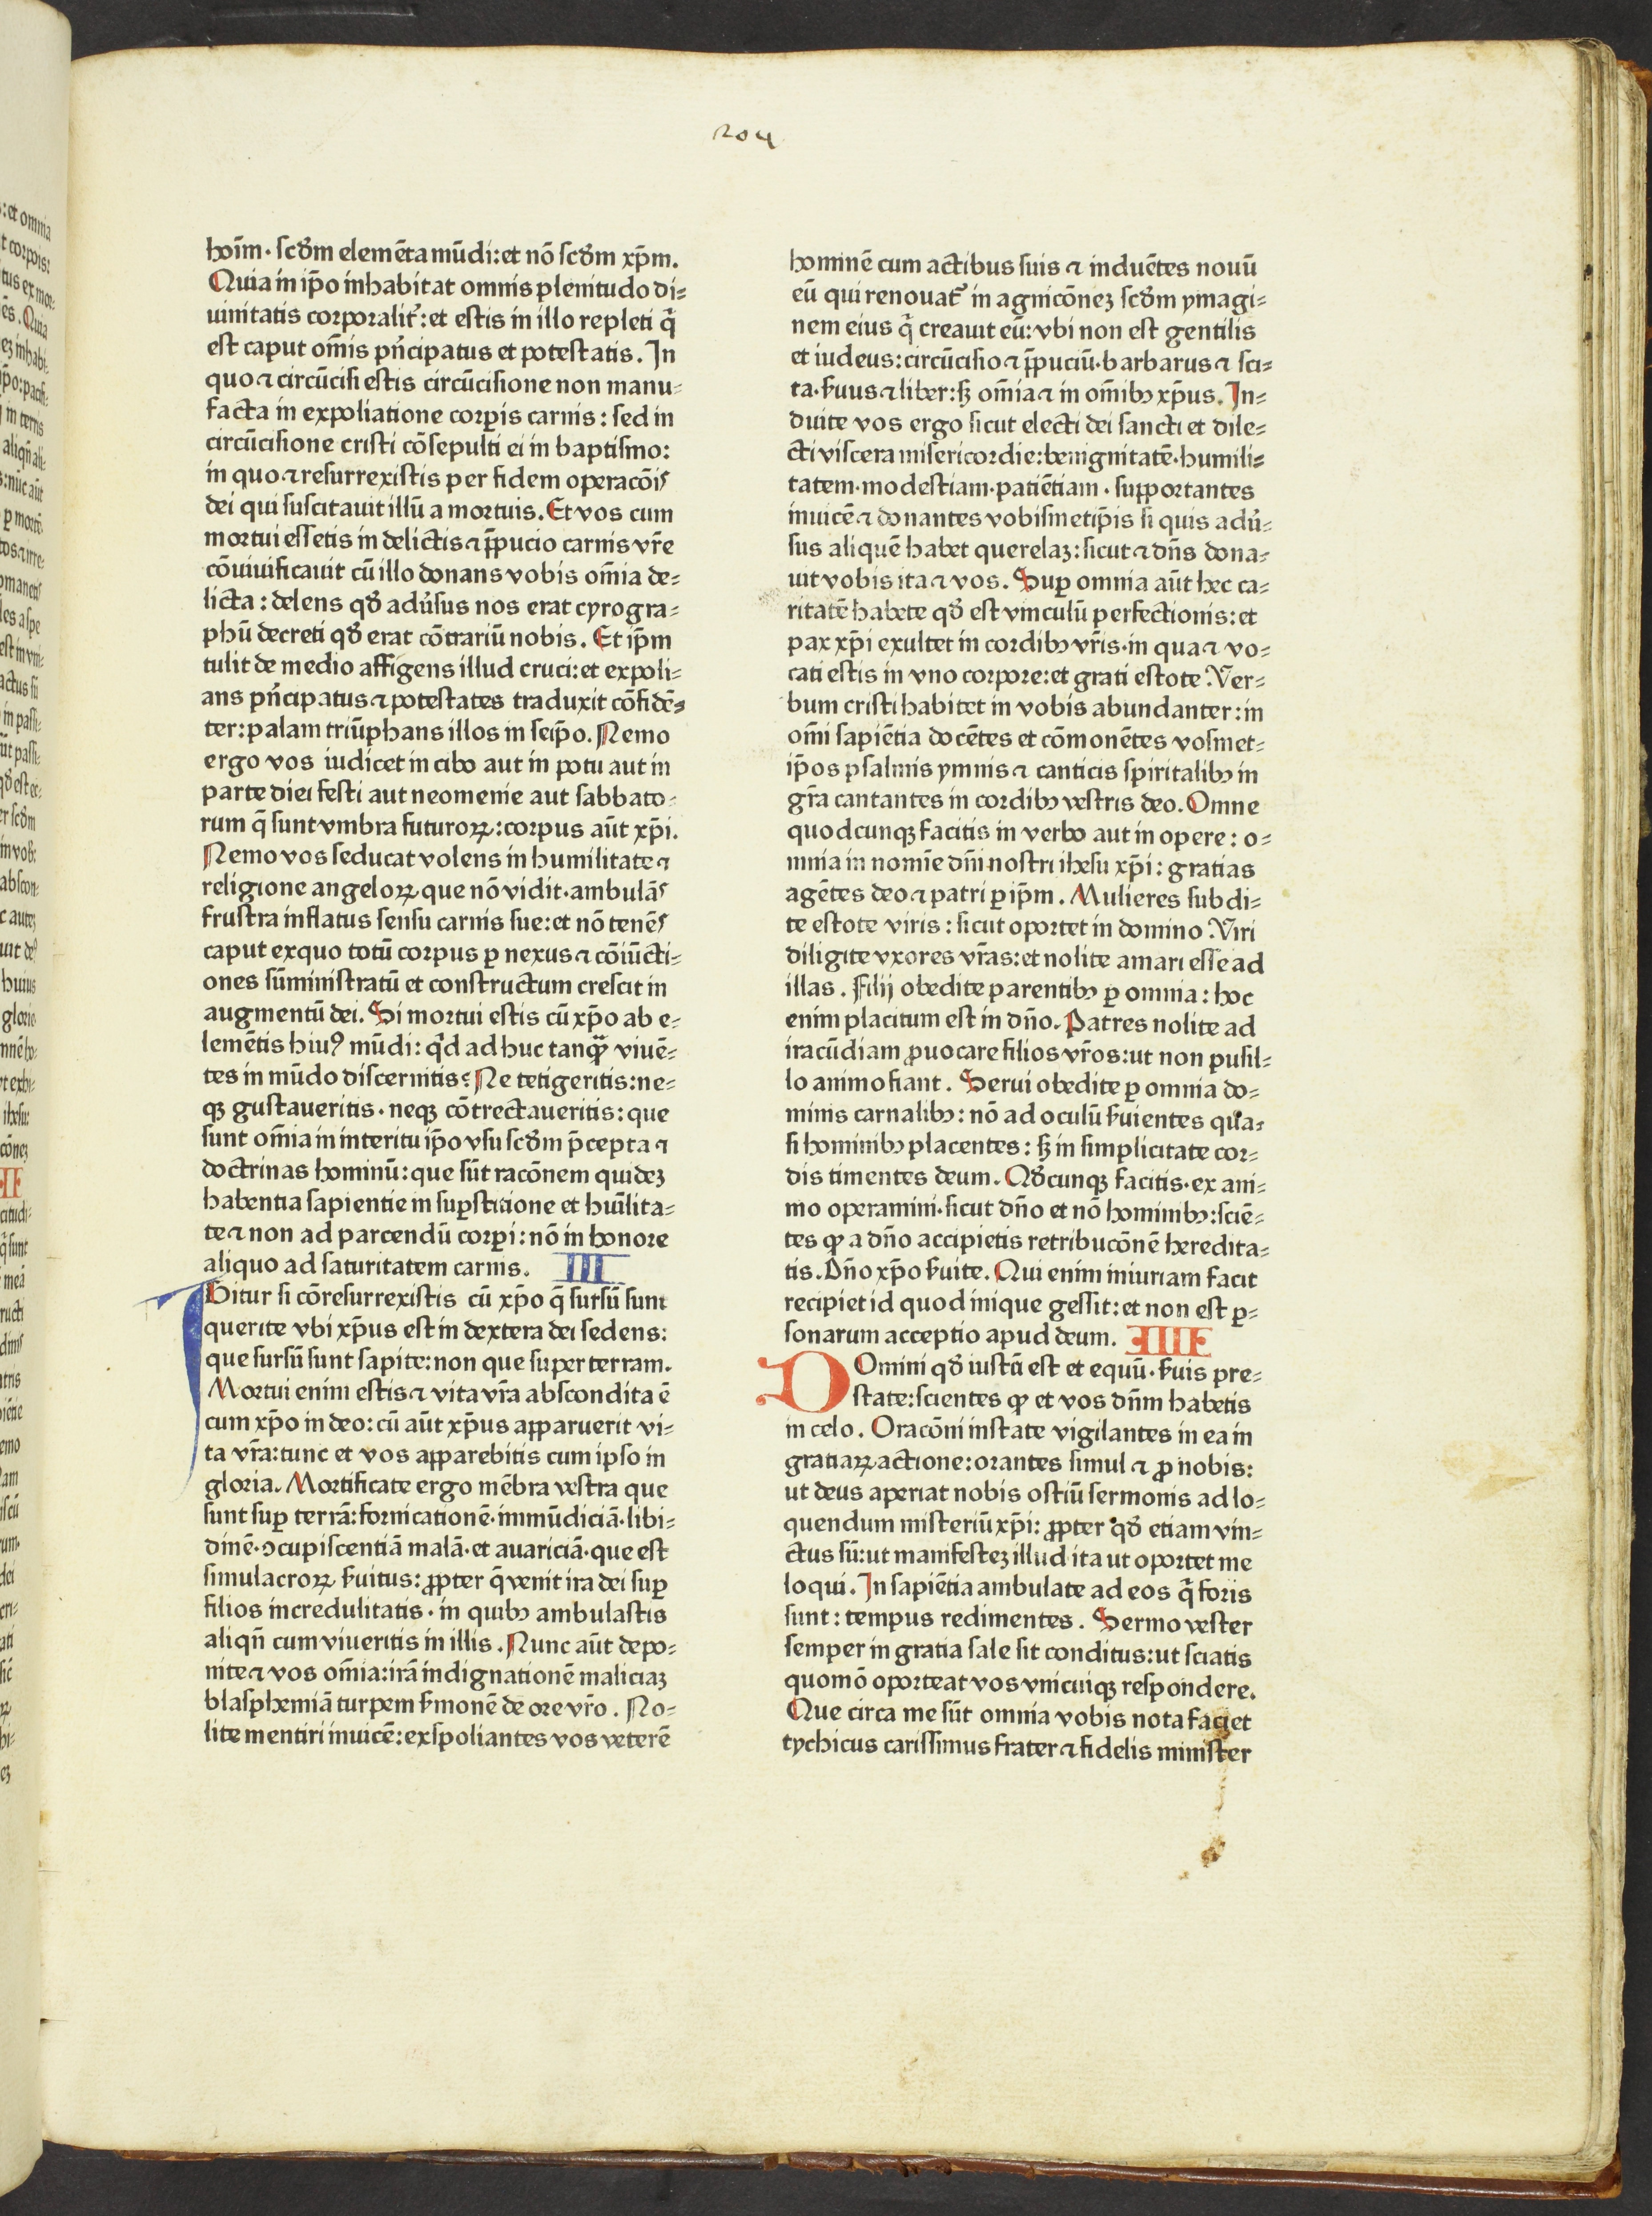 204
hoīm· scd̄m elemēta mūdi: et nō scd̄m xp̄m.
Quia in ip̄o inhabitat omnis plenitudo di=
uinitatis corporalit̄: et estis in illo repleti q̄
est caput om̄is pn̄cipatus et potestatis. In
quo ⁊ circūcisi estis circūcisione non manu=
facta in expoliatione corꝑis carnis: sed in
circūcisione cristi cōsepulti ei in baptismo:
in quo ⁊ resurrexistis per fidem operacōis
dei qui suscitauit illū a mortuis. Et vos cum
mortui essetis in delictis ⁊ p̄pucio carnis vr̄e
cōuiuificauit cū illo donans vobis om̄ia de=
licta: delens qd̄ adu̓sus nos erat cyrogra=
phū decreti qd̄ erat cōtrariū nobis. Et ip̄m
tulit de medio affigens illud cruci: et expoli=
ans pn̄cipatus ⁊ potestates traduxit cōfidē=
ter: palam triūphans illos in seip̄o. Nemo
ergo vos iudicet in cibo aut in potu aut in
parte diei festi aut neomenie aut sabbato=
rum q̄ sunt vmbra futuroꝝ: corpus aūt xp̄i.
Nemo vos seducat volens in humilitate ⁊
religione angeloꝝ que nō vidit· ambulās
frustra inflatus sensu carnis sue: et nō tenēs
caput ex quo totū corpus ꝑ nexus ⁊ cōiūcti=
ones sūministratū et constructum crescit in
augmentū dei. Si mortui estis cū xp̄o ab e=
lemētis hiuꝰ mūdi: qͥd ad huc tanqꝫ̄ viuē=
tes in mūdo discernitis? Ne tetigeritis: ne=
qꝫ gustaueritis· neqꝫ cōtrectaueritis: que
sunt om̄ia in interitu ip̄o vsu scd̄m p̄cepta ⁊
doctrinas hominū: que sūt racōnem quideꝫ
habentia sapientie in suꝑstitione et hu̅ilita=
te ⁊ non ad parcendū corꝑi: nō in honore
aliquo ad saturitatem carnis. III
IGitur si cōresurrexistis cū xp̄o q̄ sursū sunt
querite vbi xp̄us est in dextera dei sedens:
que sursū sunt sapite: non que super terram.
Mortui enim estis ⁊ vita vr̄a abscondita ē
cum xp̄o in deo: cū aūt xp̄us apparuerit vi=
ta vr̄a: tunc et vos apparebitis cum ipso in
gloria. Mortificate ergo mēbra vestra que
sunt suꝑ terrā: fornicationē· immūdiciā· libi=
dinē· ꝯcupiscentiā malā· et auariciā· que est
simulacroꝝ ẜuitus: ꝓpter q̄ venit ira dei suꝑ
filios incredulitatis· in quibꝫ ambulastis
aliqn̄ cum viueritis in illis. Nunc aūt depo=
nite ⁊ vos om̄ia: irā indignationē maliciaꝫ
blasphemiā turpem ẜmonē de ore vr̄o. No=
lite mentiri inuicē: exspoliantes vos veterē
hominē cum actibus suis ⁊ induētes nouū
eū qui renouat̄ in agnicōneꝫ scd̄m ymagi=
nem eius q̄ creauit eū: vbi non est gentilis
et iudeus: circūcisio ⁊ p̄puciū· barbarus ⁊ sci=
ta· ẜuus ⁊ liber: sꝫ om̄ia ⁊ in om̄ibꝫ xp̄us. In=
duite vos ergo sicut electi dei sancti et dile=
cti viscera misericordie: benignitatē· humili=
tatem· modestiam· patiētiam· supportantes
inuicē ⁊ donantes vobismetip̄is si quis adu̓=
sus aliquē habet querelaꝫ: sicut ⁊ dn̄s dona=
uit vobis ita ⁊ vos. Suꝑ omnia aūt hec ca=
ritatē habete qd̄ est vinculū perfectionis: et
pax xp̄i exultet in cordibꝫ vr̄is· in qua ⁊ vo=
cati estis in vno corpore: et grati estote. Ver=
bum cristi habitet in vobis abundanter: in
om̄i sapiētia docētes et cōmonētes vosmet=
ip̄os psalmis ymnis ⁊ canticis spiritalibꝫ in
gr̄a cantantes in cordibꝫ vestris deo. Omne
quodcunqꝫ facitis in verbo aut in opere: o=
mnia in nomīe dn̄i nostri ihesu xp̄i: gratias
agētes deo ⁊ patri ꝑ ip̄m. Mulieres subdi=
te estote viris: sicut oportet in domino. Viri
diligite vxores vr̄as: et nolite amari esse ad
illas. Filij obedite parentibꝫ ꝑ omnia: hoc
enim placitum est in dn̄o. Patres nolite ad
iracūdiam ꝓuocare filios vr̄os: ut non pusil=
lo animo fiant. Serui obedite ꝑ omnia do=
minis carnalibꝫ: nō ad oculū ẜuientes qua=
si hominibꝫ placentes: sꝫ in simplicitate cor=
dis timentes deum. Qd̄cunqꝫ facitis· ex ani=
mo operamini· sicut dn̄o et nō hominibꝫ: sciē=
tes ꝙ a dn̄o accipietis retribucōnē heredita=
tis. Dn̄o xp̄o ẜuite. Qui enim iniuriam facit
recipiet id quod inique gessit: et non est ꝑ=
sonarum acceptio apud deum. IIII
DOmini qd̄ iustū est et equū· ẜuis pre=
state: scientes ꝙ et vos dn̄m habetis
in celo. Oracōni instate vigilantes in ea in
gratiaꝝ actione: orantes simul ⁊ ꝓ nobis:
ut deus aperiat nobis ostiū sermonis ad lo=
quendum misteriū xp̄i: ꝓpter qd̄ etiam vin=
ctus sū: ut manifesteꝫ illud ita ut oportet me
loqui. In sapiētia ambulate ad eos q̄ foris
sunt: tempus redimentes. Sermo vester
semper in gratia sale sit conditus: ut sciatis
quomō oporteat vos vnicuiqꝫ respondere.
Que circa me sūt omnia vobis nota faciet
tychicus carissimus frater ⁊ fidelis minister